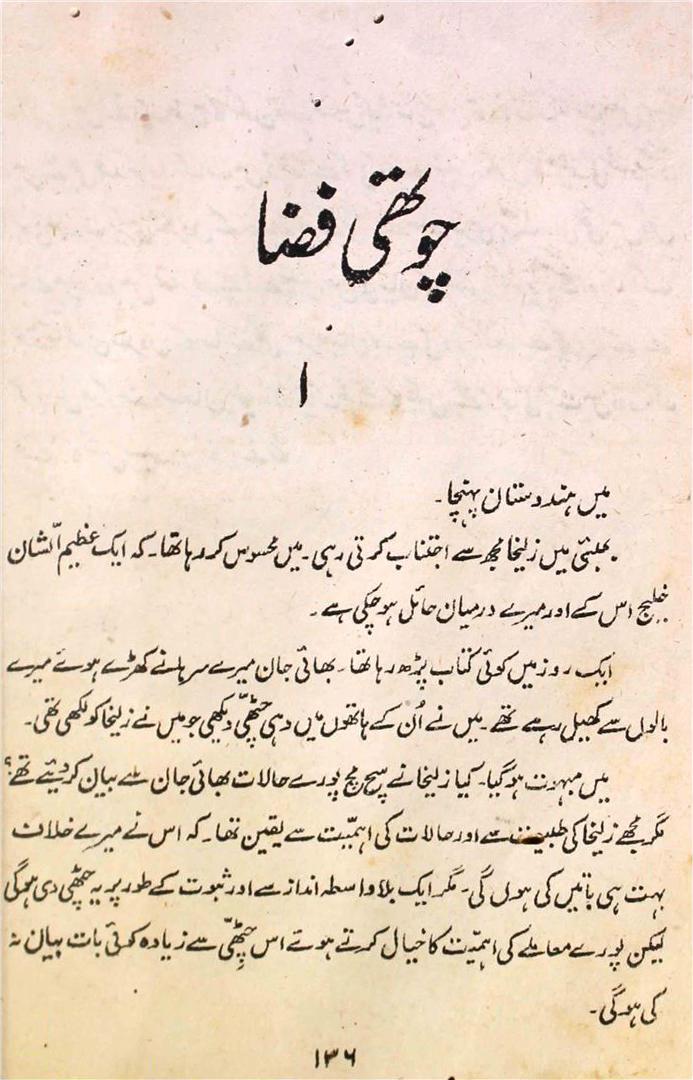 چوتھی فضا
۱
میں ہندوستان پہنچا۔
بمبئی میں زلیخا مجھ سے اجتناب کرتی رہی۔ میں محسوس کر رہا تھا۔ کہ ایک عظیم الّشان
خلیج اس کے اور میرے درمیان حائل ہو چکی ہے۔
ایک روز میں کوئی کتاب پڑھ رہا تھا۔ بھائی جان میرے سرہانے کھڑے ہوئے میرے
بالوں سے کھیل رہے تھے۔ میں نے اُن کے ہاتھوں میں وہی چٹھّی دیکھی جو میں نے زلیخا کو لکھی تھی۔
میں مبہوت ہو گیا۔ کیا زلیخا نے سچ مچ پورے حالات بھائی جان سے بیان کر دیئے تھے؟
مگر مجھے زلیخا کی طبیعت سے اور حالات کی اہمیّت سے یقین تھا۔ کہ اس نے میرے خلاف
بہت ہی باتیں کی ہوں گی۔ مگر ایک بلاواسطہ انداز سے اور ثبوت کے طور پر یہ چٹھّی دی ہوگی
لیکن پورے معاملے کی اہمیّت کا خیال کرتے ہوئے اس چِٹھّی سے زیادہ کوئی بات بیان نہ
کی ہو گی۔
۱۳۶